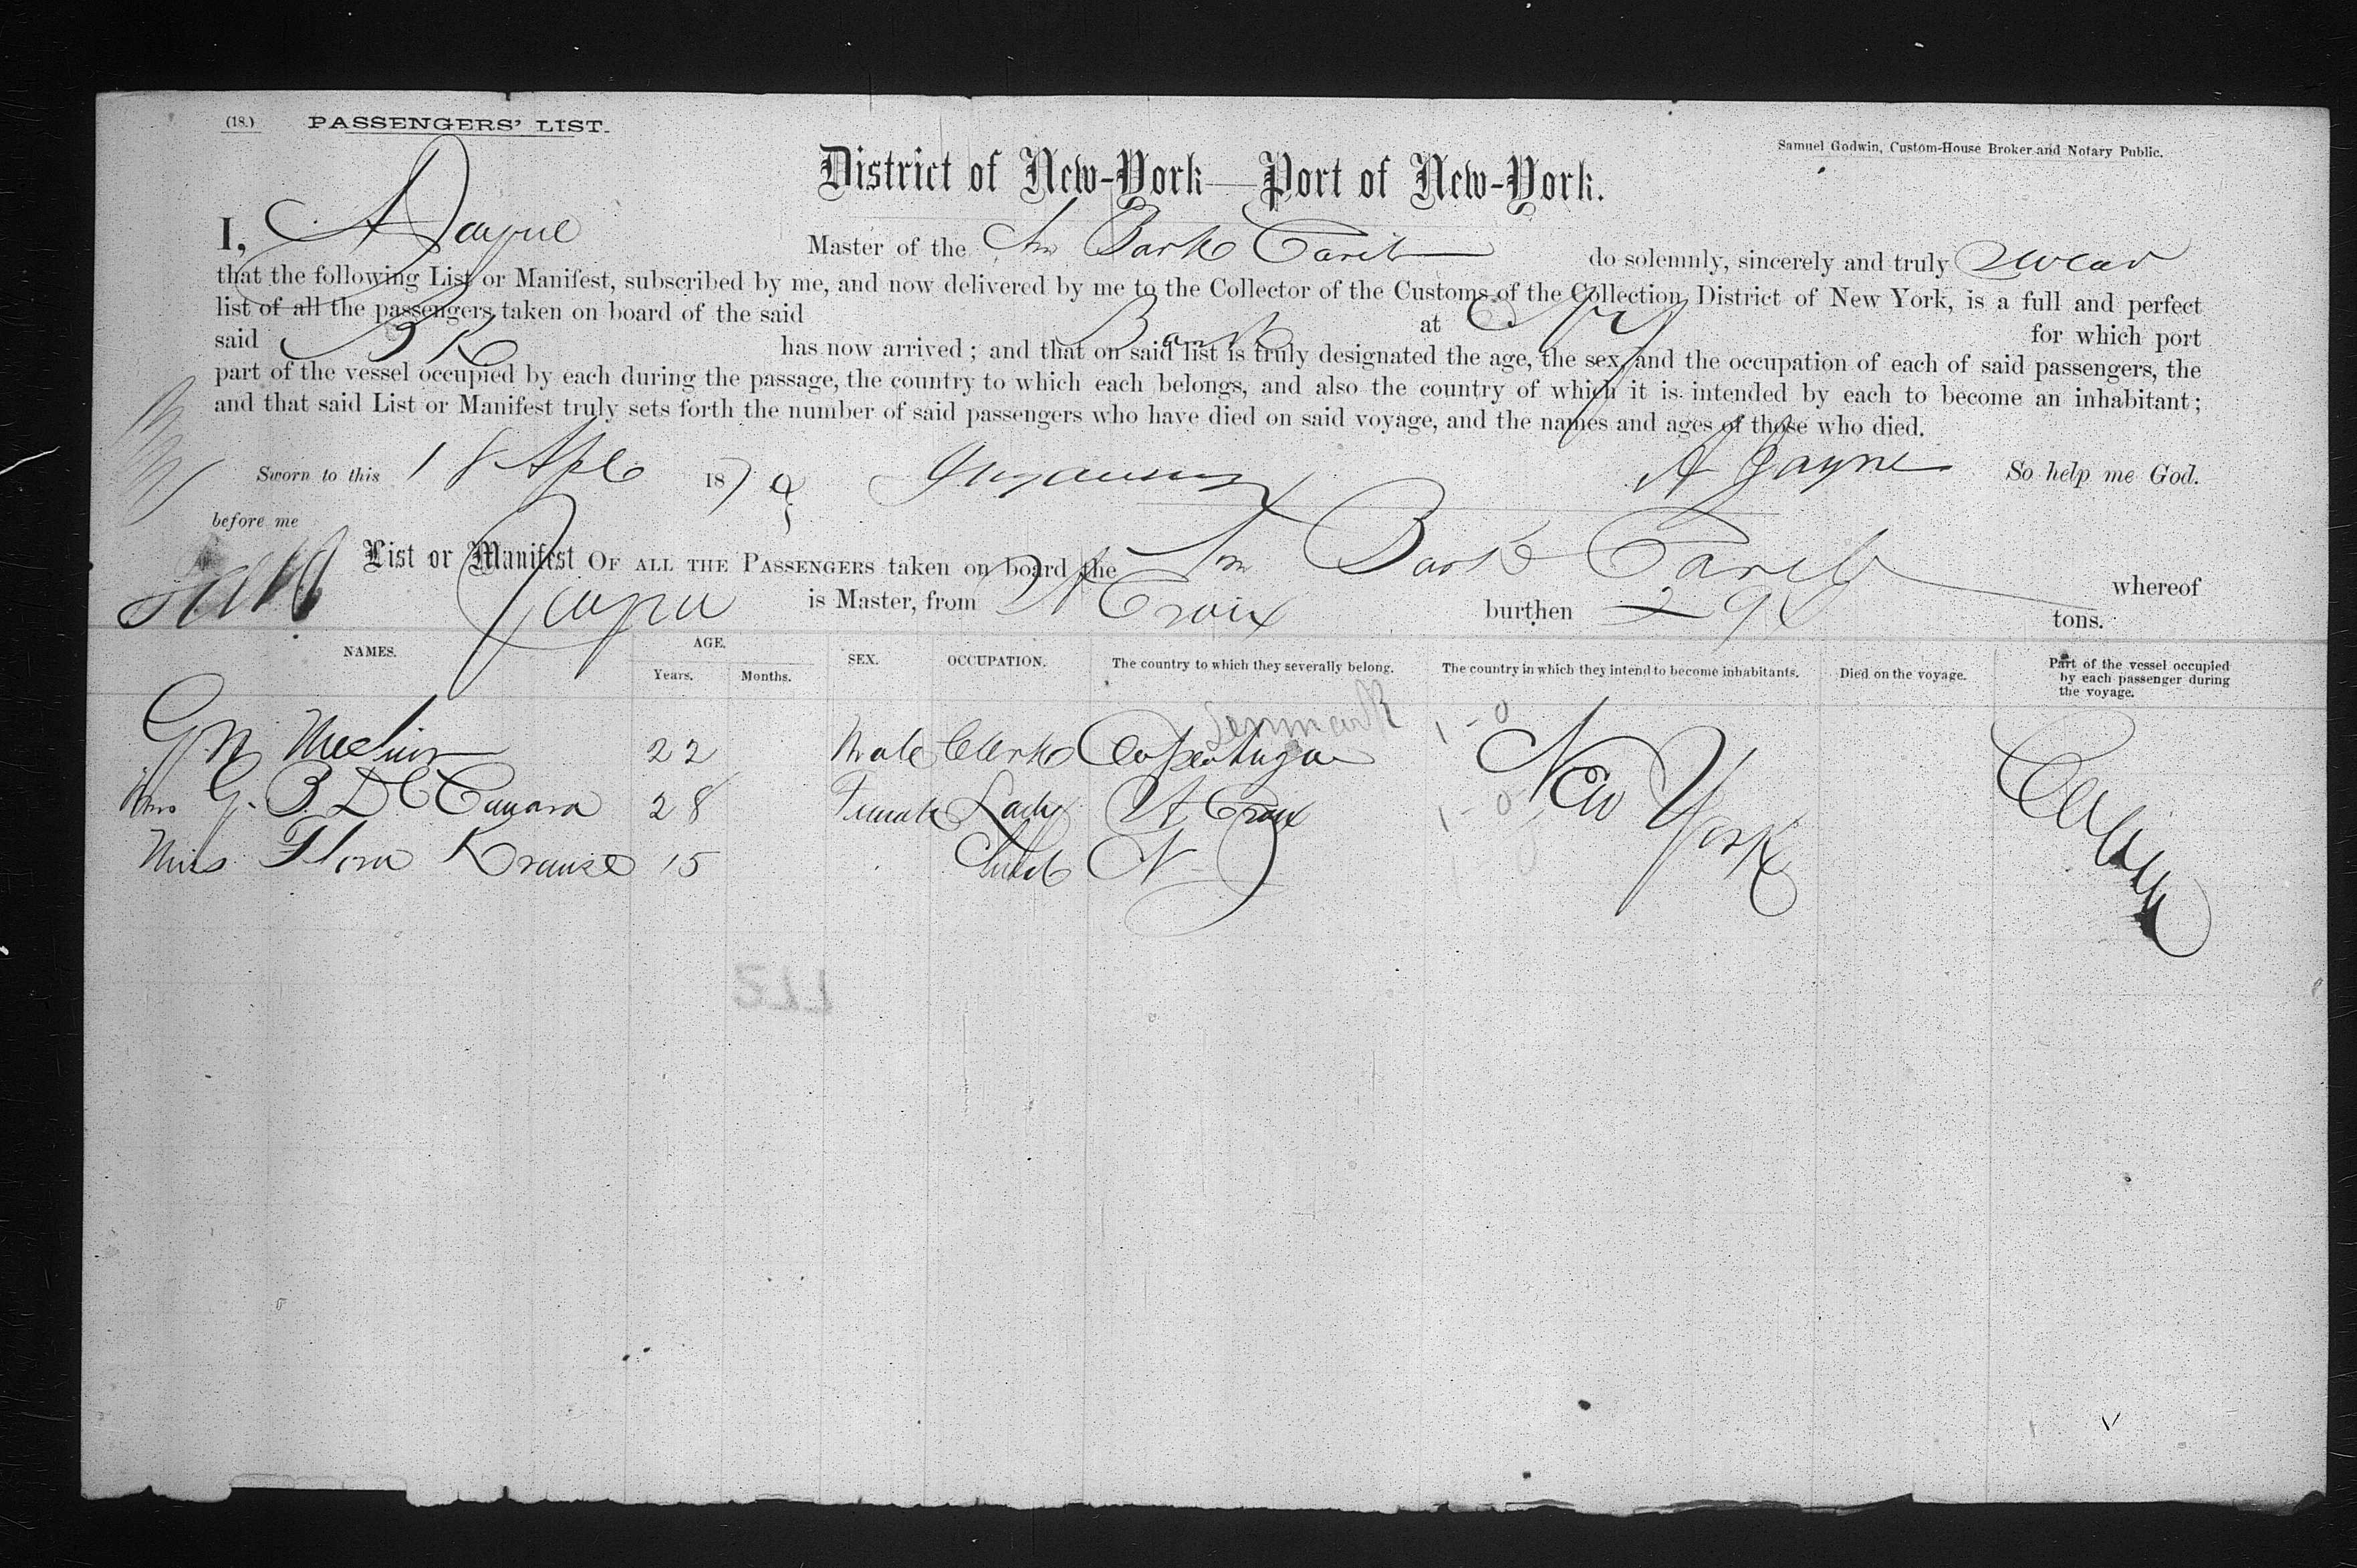 (18.) PASSENGERS' LIST.
Samuel Godwin, Custom-House Broker and Notary Public.
District of New-York—Port of New-York.
I, A Jayne Master of the Am Bark Carib do solemnly, sincerely and truly swear
that the following List or Manifest, subscribed by me, and now delivered by me to the Collector of the Customs of the Collection District of New York, is a full and perfect
list of all the passengers taken on board of the said Bark at for which port
said Bk has now arrived; and that on said list is truly designated the age, the sex, and the occupation of each of said passengers, the
part of the vessel occupied by each during the passage, the country to which each belongs, and also the country of which it is intended by each to become an inhabitant;
and that said List or Manifest truly sets forth the number of said passengers who have died on said voyage, and the names and ages of those who died.
Sworn to this 18 Apl 1879 A Jayne So help me God.
before me
List or Manifest OF ALL THE PASSENGERS taken on board the Am Bark Carib whereof
Jayne is Master, from St Croix burthen tons.
NAMES. AGE. Years. Months. SEX. OCCUPATION. The country to which they severally belong. The country in which they intend to become inhabitants. Died on the voyage. Part of the vessel occupied by each passenger during the voyage.
Denmark 1-0
G. N. 22 Male Clerk Copenhagen New York Cabin
Mrs G. B. D. C. 28 Female Lady St Croix 1-0
Miss Flora Krause 15 Child